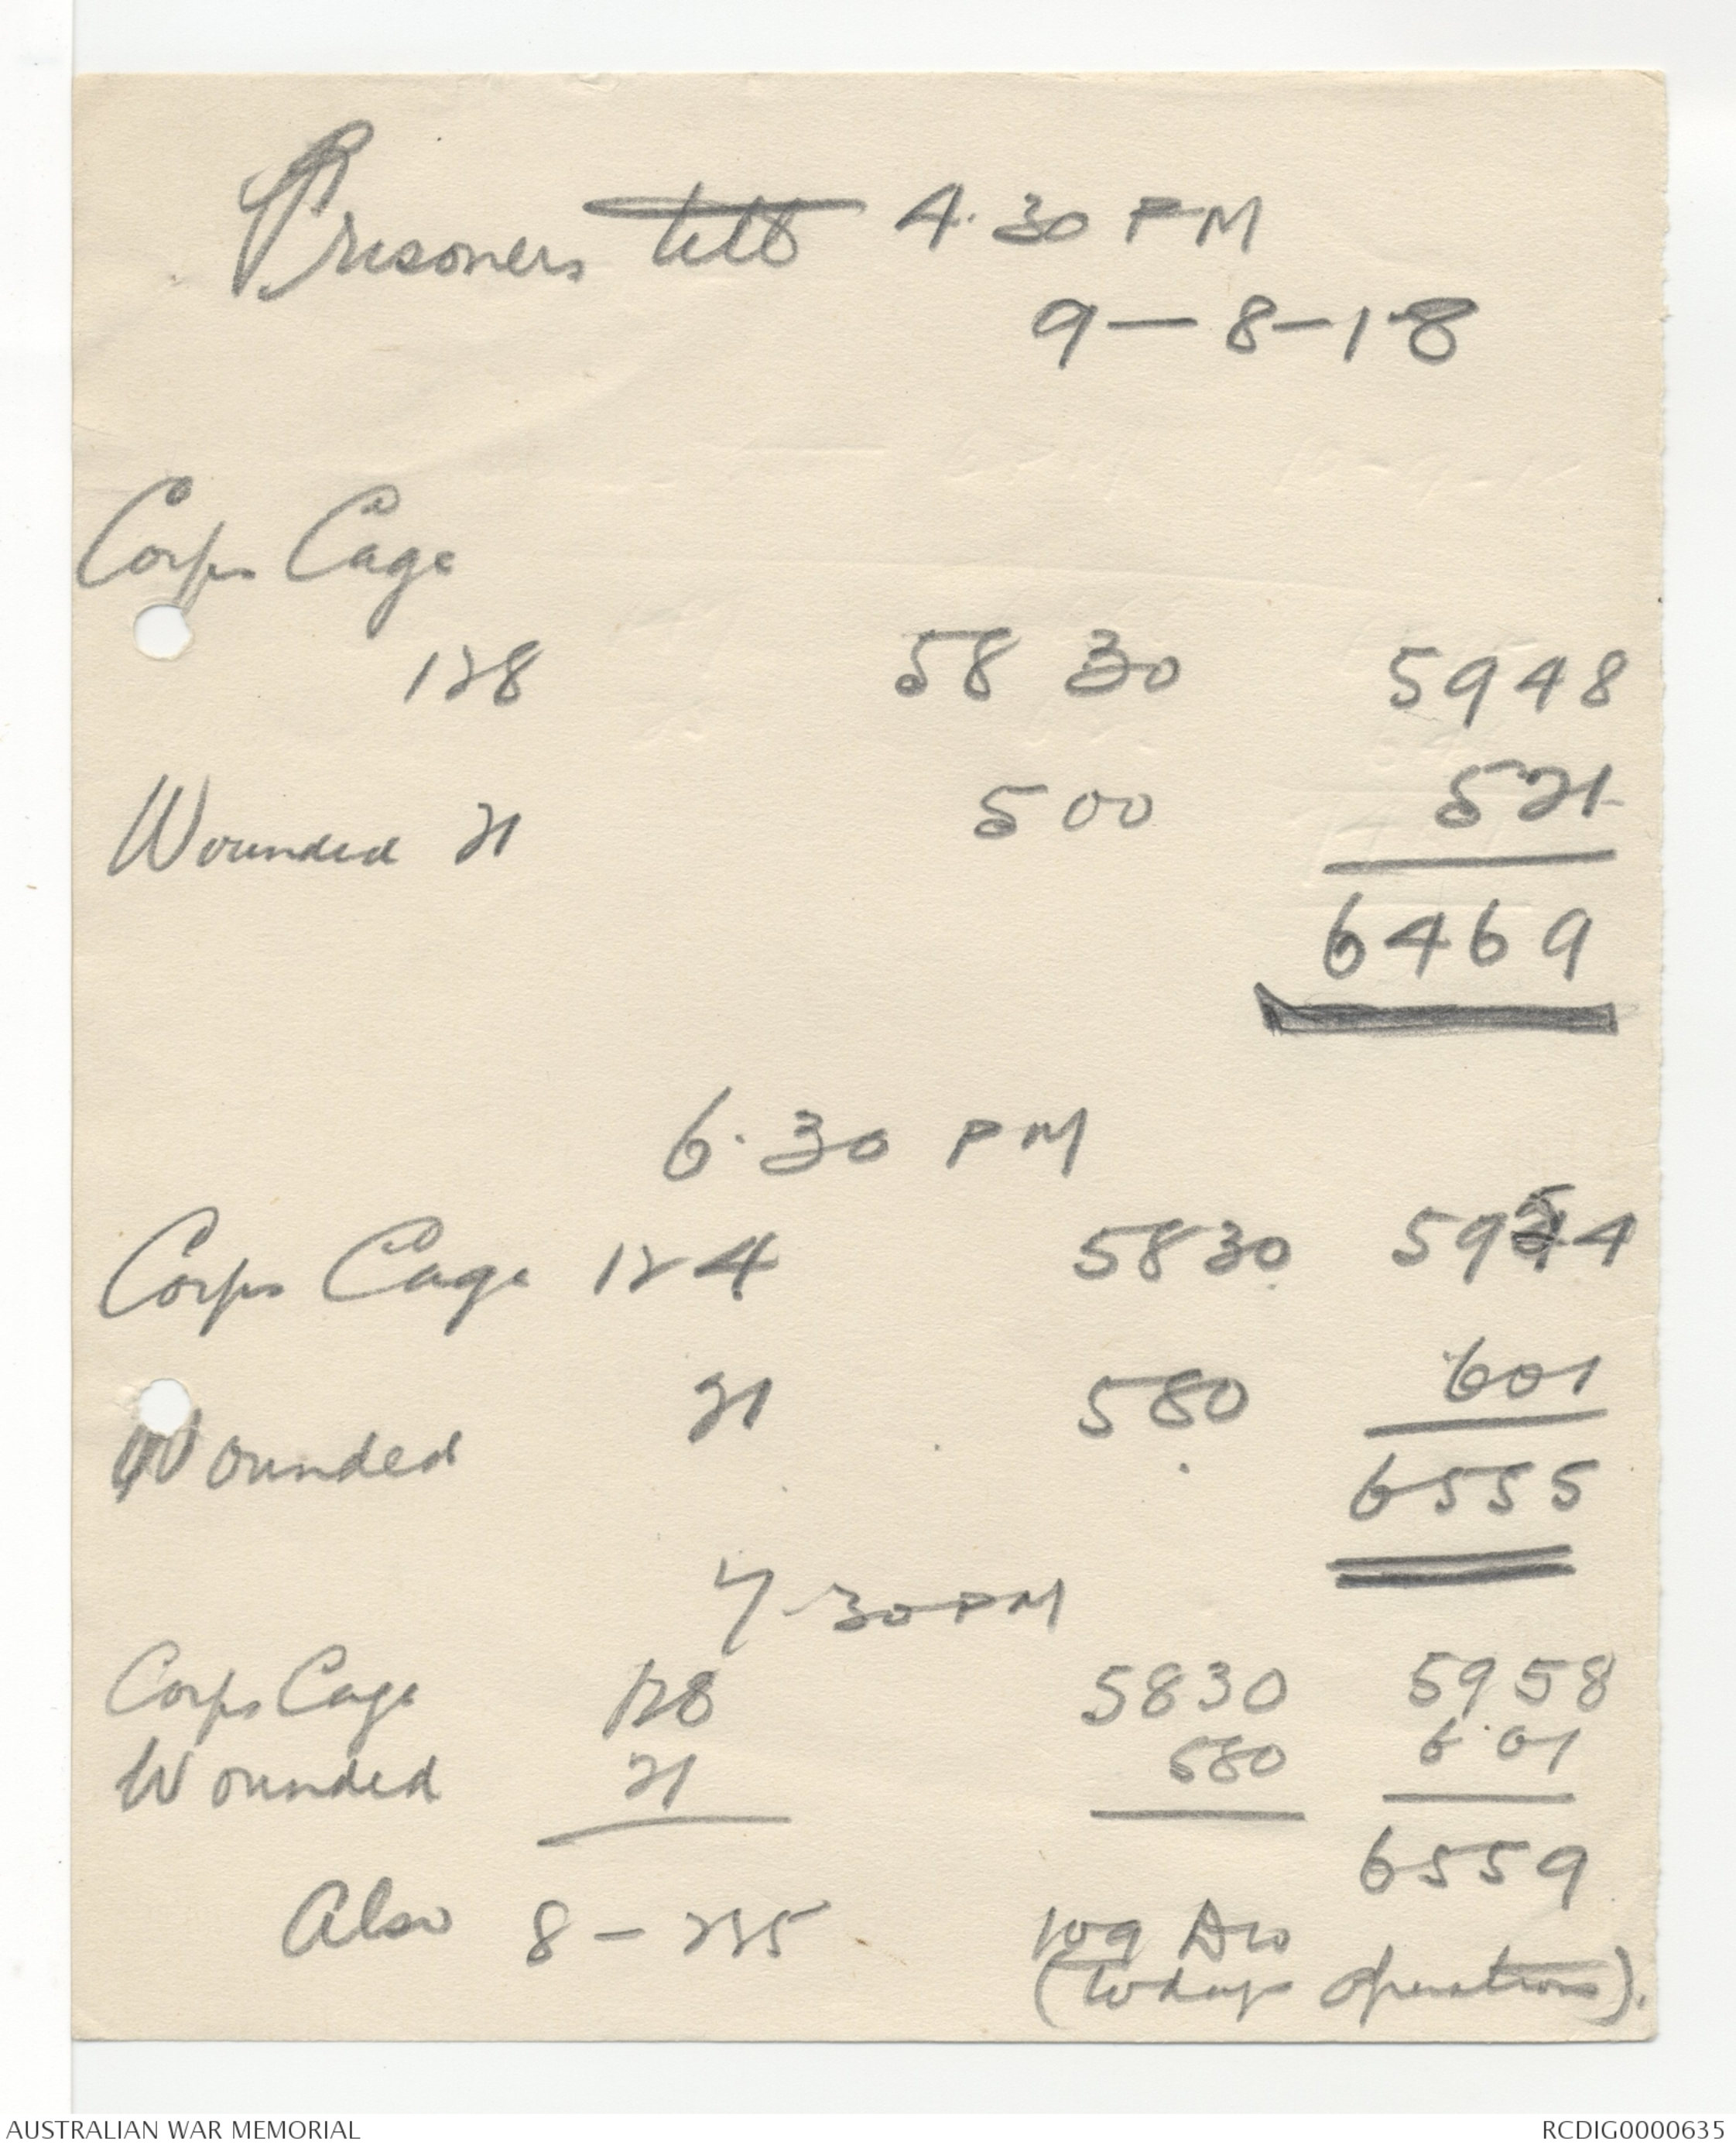 Prisoners till 4.30 PM
9-8-18
Corps Cage
128 5830 5948
Wounded 21 500 521
6469
6.30 PM
Corps Cage 124 5830 5954
Wounded 21 580 601
6555
7.30 PM
Corps Cage 128 5830 5958
Wounded 21 580 601
6559
Also 8 - 235 109 Div
(todays operations).
AUSTRALIAN WAR MEMORIAL RCDIG0000635